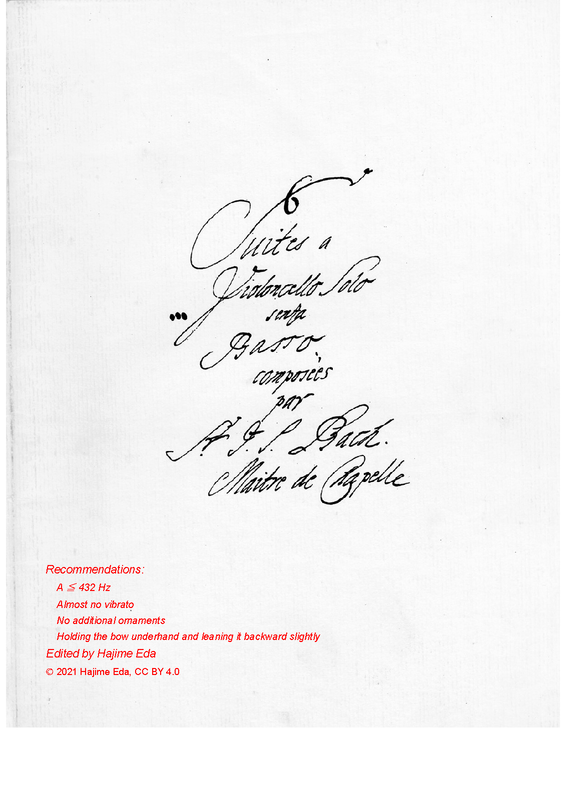 6
Suites a
Violoncello Solo
senza
Basso.
composées
par
Sr. J. S. Bach.
Maitre de Chapelle
Recommendations:
A ≦ 432 Hz
Almost no vibrato
No additional ornaments
Holding the bow underhand and leaning it backward slightly
Edited by Hajime Eda
© 2021 Hajime Eda, CC BY 4.0